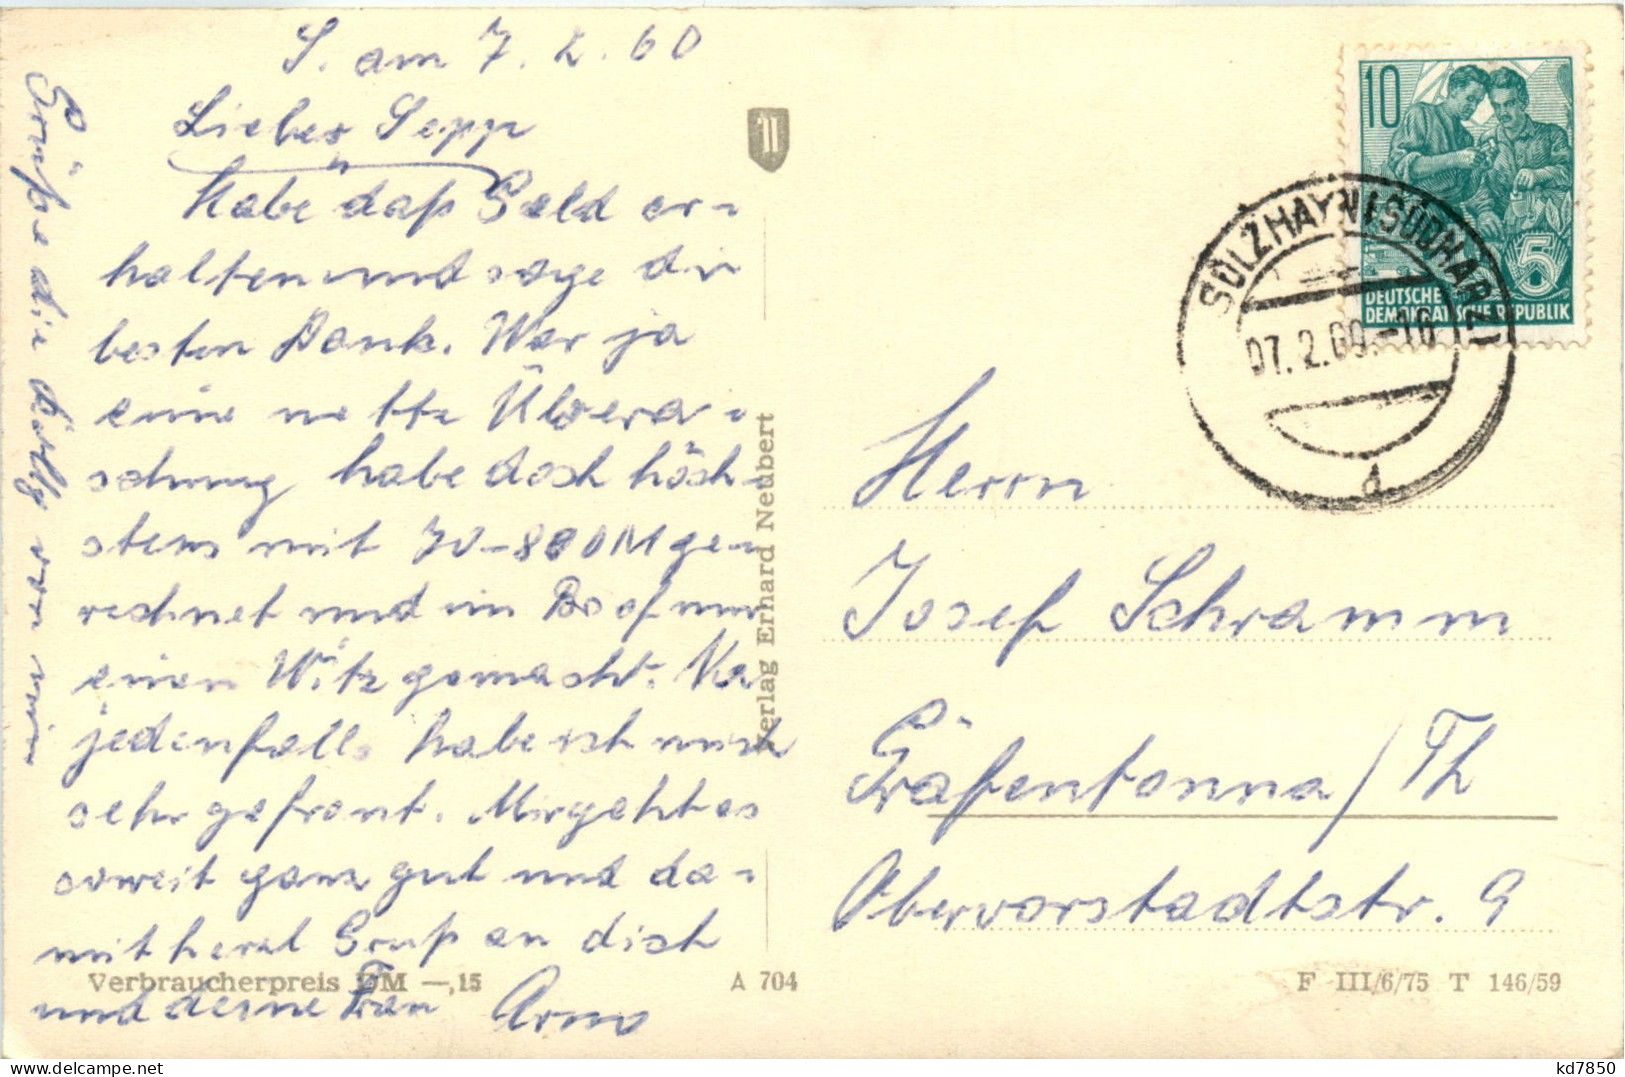 S. am 7. 2. 60
Lieber Sepp
Habe daß Geld er-
halten und sage dir
besten Dank. War ja
eine nette Übera-
schung habe doch höch-
stens mit 70-80 DM ge-
rechnet und im
einen Witz gemacht. Na
jedenfalls habe ich mich
sehr gefreut. Mir geht es
soweit ganz gut und da-
mit herzl Gruß an dich
und deine Frau Arno
Grüße die von mir
Verlag Erhard Neubert
Verbraucherpreis DM —,15
A 704
F III/6/75 T 146/59
10
5
DEUTSCHE
DEMOKRATISCHE REPUBLIK
SÜLZHAYN (SÜDHARZ)
07. 2. 60.-16
d
Herrn
Josef Schramm
Gräfentonna / Th
Obervorstadtstr. 9
akpool.de
kd7850